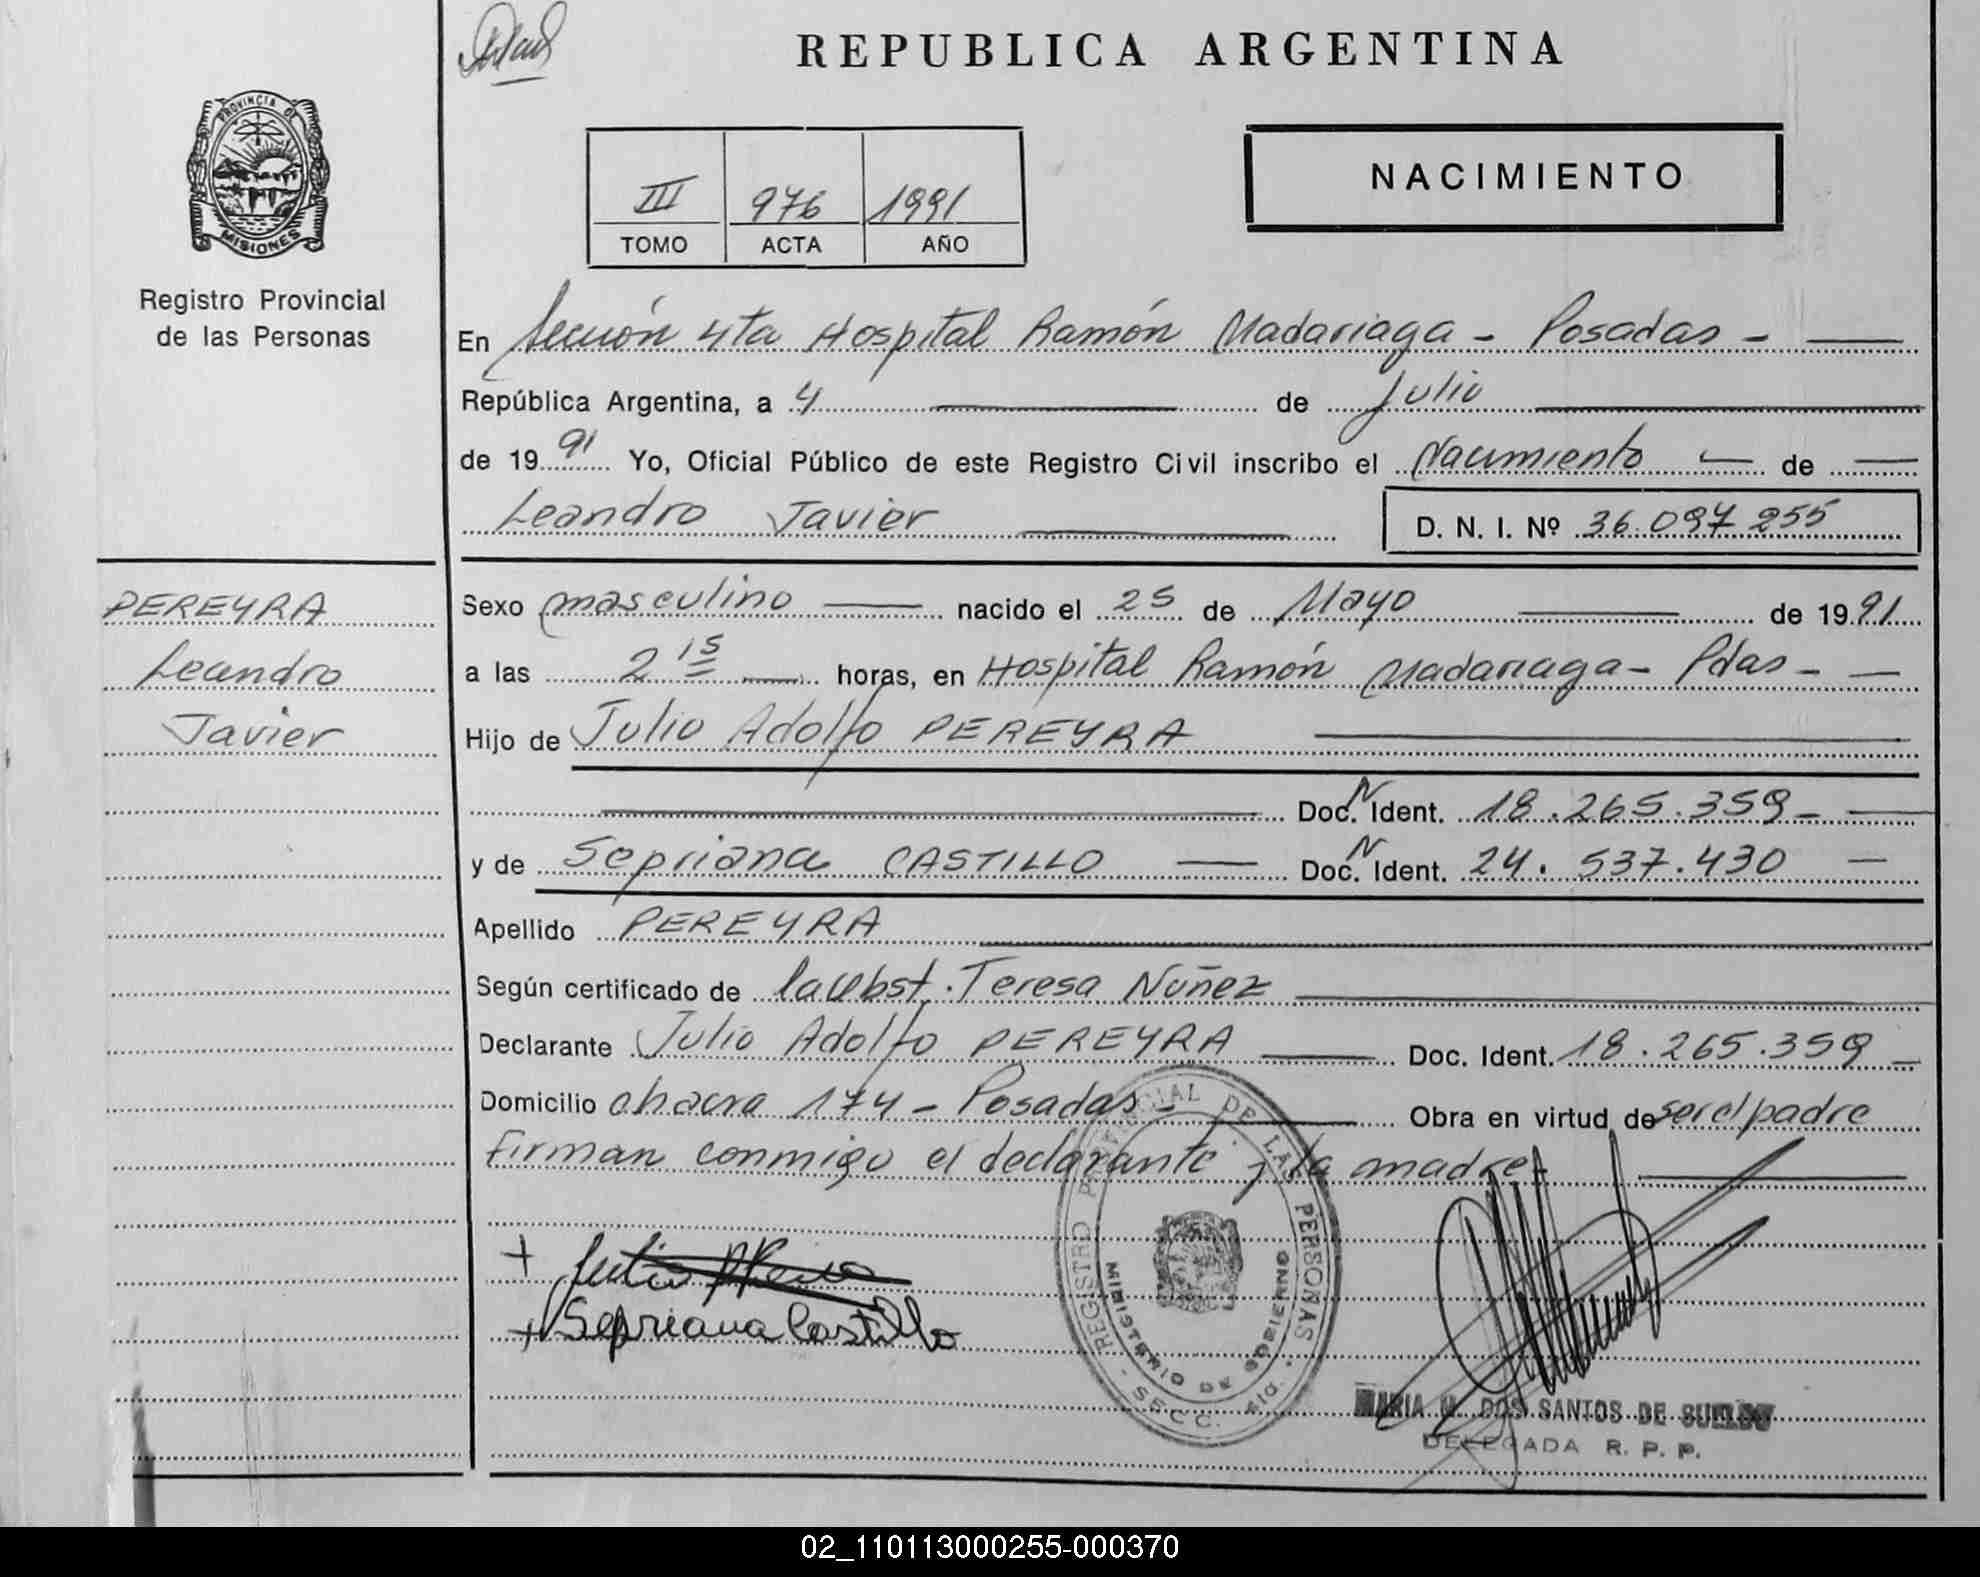 REPUBLICA ARGENTINA
PROVINCIA DE
MISIONES
Registro Provincial
de las Personas
III 976 1991
TOMO ACTA AÑO
NACIMIENTO
En Sección 4ta Hospital Ramón Madariaga - Posadas -
República Argentina, a 4 de Julio
de 1991 Yo, Oficial Público de este Registro Civil inscribo el Nacimiento de
Leandro Javier D. N. I. Nº 36.097.255
PEREYRA
Leandro
Javier
Sexo masculino nacido el 25 de Mayo de 1991
a las 2 15 horas, en Hospital Ramón Madariaga - Pdas -
Hijo de Julio Adolfo PEREYRA
Doc. N Ident. 18.265.359 -
y de Sepriana CASTILLO Doc. N Ident. 24.537.430
Apellido PEREYRA
Según certificado de la Obst. Teresa Núñez
Declarante Julio Adolfo PEREYRA Doc. Ident. 18.265.359 -
Domicilio chacra 174 - Posadas - Obra en virtud de ser el padre
Firman conmigo el declarante y la madre
Sepriana Castillo
REGISTRO PROVINCIAL DE LAS PERSONAS
MINISTERIO DE GOBIERNO
SECC. 4ta.
MARIA M. DOS SANTOS DE
DELEGADA R. P. P.
02_110113000255-000370